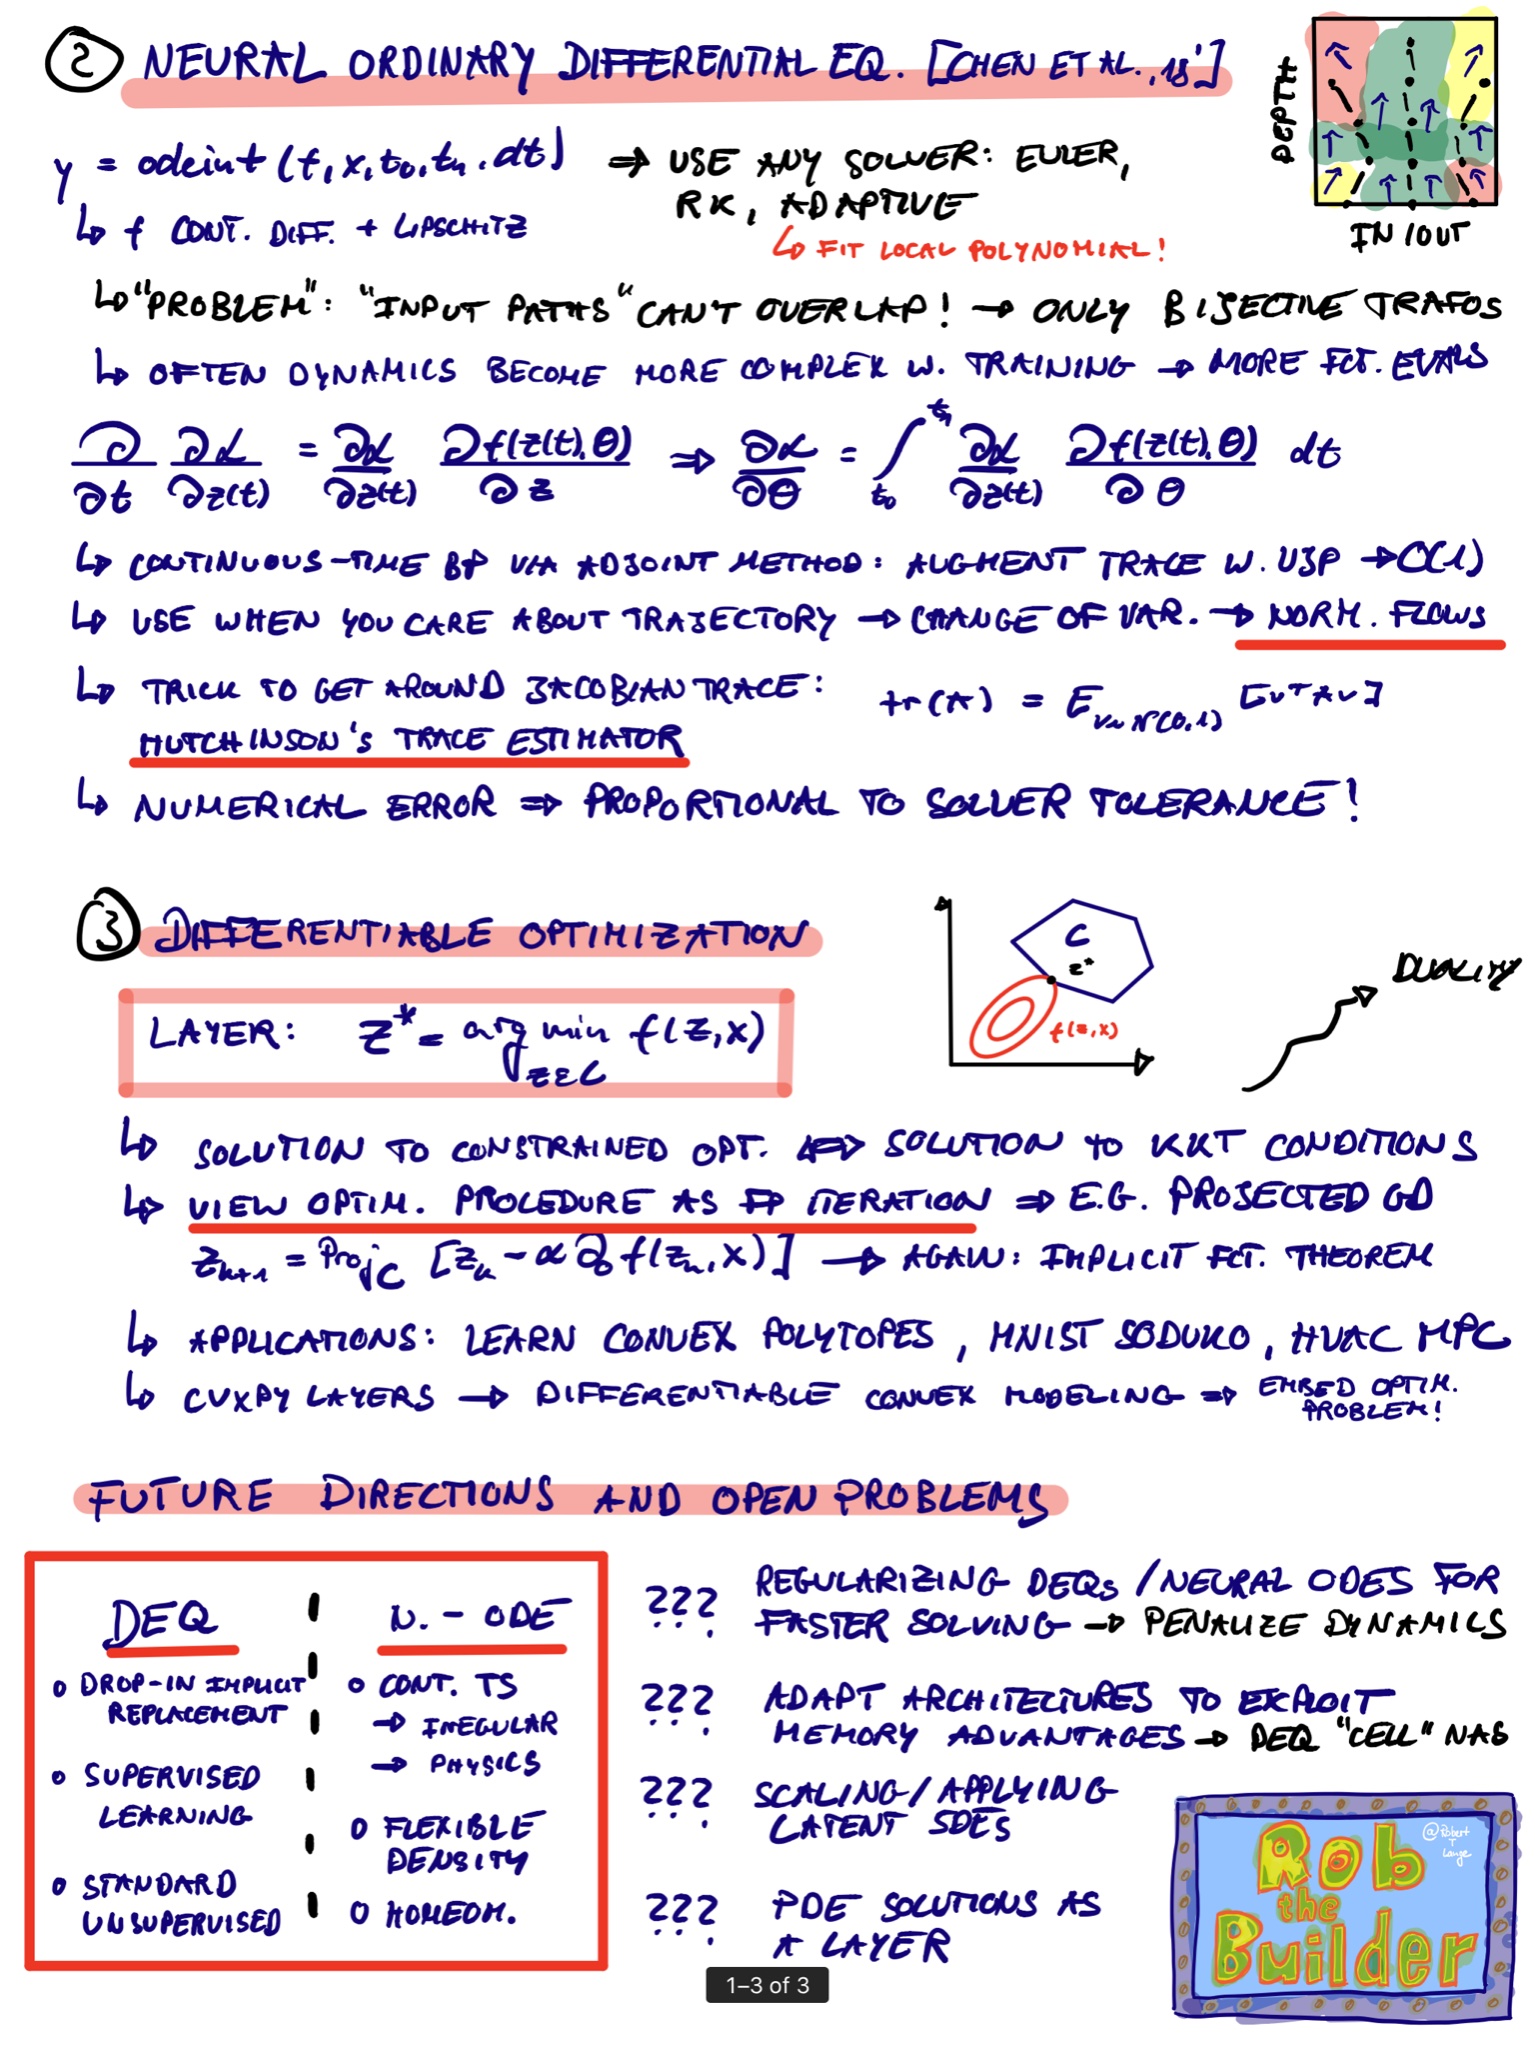 2 NEURAL ORDINARY DIFFERENTIAL EQ. [CHEN ET AL., 18']
DEPTH
IN/OUT
y = odeint(f, x, t₀, tₙ, dt) ⇒ USE ANY SOLVER: EULER,
RK, ADAPTIVE
↳ f CONT. DIFF. + LIPSCHITZ
↳ FIT LOCAL POLYNOMIAL!
↳ "PROBLEM": "INPUT PATHS" CAN'T OVERLAP! → ONLY BIJECTIVE TRAFOS
↳ OFTEN DYNAMICS BECOME MORE COMPLEX W. TRAINING → MORE FCT. EVALS
∂/∂t ∂L/∂z(t) = ∂L/∂z(t) ∂f(z(t),θ)/∂z ⇒ ∂L/∂θ = ∫_{t₀}^{tₙ} ∂L/∂z(t) ∂f(z(t),θ)/∂θ dt
↳ CONTINUOUS-TIME BP VIA ADJOINT METHOD: AUGMENT TRACE W. VJP → O(1)
↳ USE WHEN YOU CARE ABOUT TRAJECTORY → CHANGE OF VAR. → NORM. FLOWS
↳ TRICK TO GET AROUND JACOBIAN TRACE: tr(A) = E_{v∼N(0,1)} [vᵀAv]
HUTCHINSON'S TRACE ESTIMATOR
↳ NUMERICAL ERROR ⇒ PROPORTIONAL TO SOLVER TOLERANCE!
3 DIFFERENTIABLE OPTIMIZATION
C
z*
f(z,x)
DUALITY
LAYER: z* = arg min f(z,x)
z∈C
↳ SOLUTION TO CONSTRAINED OPT. ⇔ SOLUTION TO KKT CONDITIONS
↳ VIEW OPTIM. PROCEDURE AS FP ITERATION ⇒ E.G. PROJECTED GD
z_{k+1} = Proj_C [z_k - α ∂ f(z_k, x)] → AGAIN: IMPLICIT FCT. THEOREM
↳ APPLICATIONS: LEARN CONVEX POLYTOPES, MNIST SODUKO, HVAC MPC
↳ CVXPY LAYERS → DIFFERENTIABLE CONVEX MODELING ⇒ EMBED OPTIM.
PROBLEM!
FUTURE DIRECTIONS AND OPEN PROBLEMS
DEQ
DROP-IN IMPLICIT
REPLACEMENT
SUPERVISED
LEARNING
STANDARD
UNSUPERVISED
N.-ODE
CONT. TS
→ IREGULAR
→ PHYSICS
FLEXIBLE
DENSITY
HOMEOM.
??? REGULARIZING DEQs/NEURAL ODES FOR
FASTER SOLVING → PENALIZE DYNAMICS
??? ADAPT ARCHITECTURES TO EXPLOIT
MEMORY ADVANTAGES → DEQ "CELL" NAS
??? SCALING/APPLYING
LATENT SDEs
??? PDE SOLUTIONS AS
A LAYER
@Robert
T
Lange
Rob
the
Builder
1–3 of 3